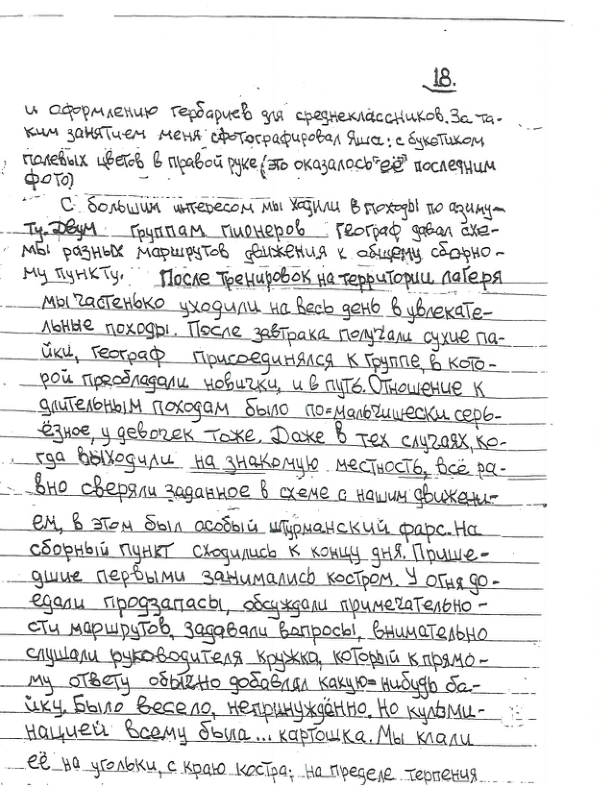 18.
и оформлению гербариев для среднеклассников. За та-
ким занятием меня сфотографировал Яша: с букетиком
полевых цветов в правой руке (это оказалось "её" последним
фото)
С большим интересом мы ходили в походы по азиму-
ту. Двум группам пионеров географ давал схе-
мы разных маршрутов движения к общему сборно-
му пункту. После тренировок на территории лагеря
мы частенько уходили на весь день в увлекате-
льные походы. После завтрака получали сухие па-
йки, географ присоединялся к группе, в кото-
рой преобладали новички, и в путь. Отношение к
длительным походам было по-мальчишески серь-
ёзное, у девочек тоже. Даже в тех случаях, ко-
гда выходили на знакомую местность, всё ра-
вно сверяли заданное в схеме с нашим движени-
ем, в этом был особый штурманский фарс. На
сборный пункт сходились к концу дня. Прише-
дшие первыми занимались костром. У огня до-
едали продзапасы, обсуждали примечательно-
сти маршрутов, задавали вопросы, внимательно
слушали руководителя кружка, который к прямо-
му ответу обычно добавлял какую-нибудь ба-
йку. Было весело, непринуждённо. Но кульми-
нацией всему была... картошка. Мы клали
её на угольки, с краю костра; на пределе терпения